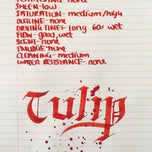 SHEEN-low
SATURATION-medium/high
OUTLINE-none
DRYING TIMES-long for wet
FLOW-good, wet
SCENT-none
SMUDGE-none
CLEANING-medium
WATER RESISTANCE-none
Tulip